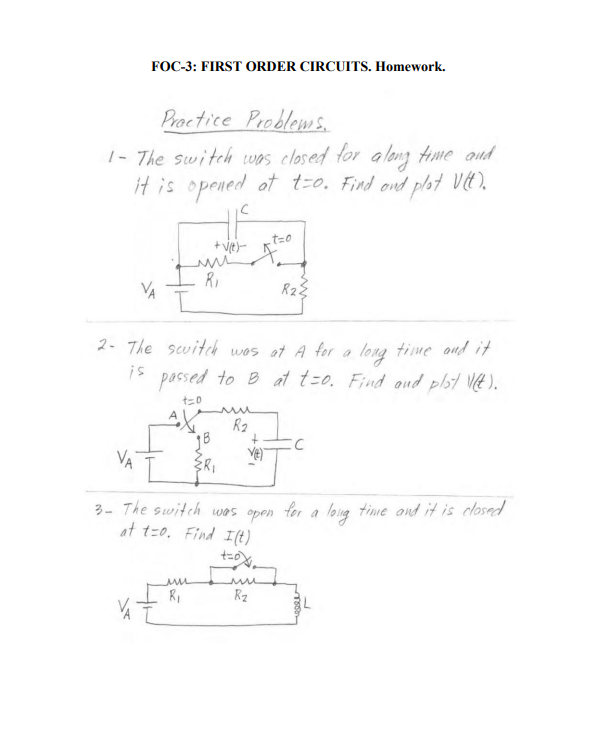 FOC-3: FIRST ORDER CIRCUITS. Homework.
Practice Problems.
1- The switch was closed for along time and
it is opened at t=0. Find and plot V(t).
C
+ V(t) -
t=0
R1
VA
R2
2- The switch was at A for a long time and it
is passed to B at t=0. Find and plot V(t).
t=0
A
R2
B
+
C
VA
V(t)
R1
-
3- The switch was open for a long time and it is closed
at t=0. Find I(t)
t=0
R1
R2
VA
L